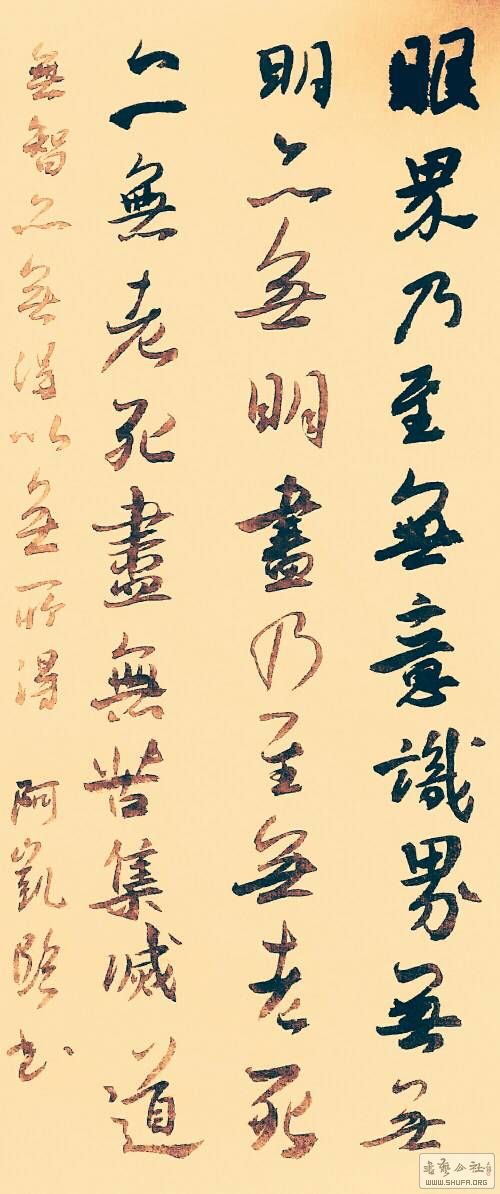 眼界乃至無意識界無無
明亦無明盡乃至無老死
亦無老死盡無苦集滅道
無智亦無得以無所得 阿凱臨书
书藝公社
WWW.SHUFA.ORG